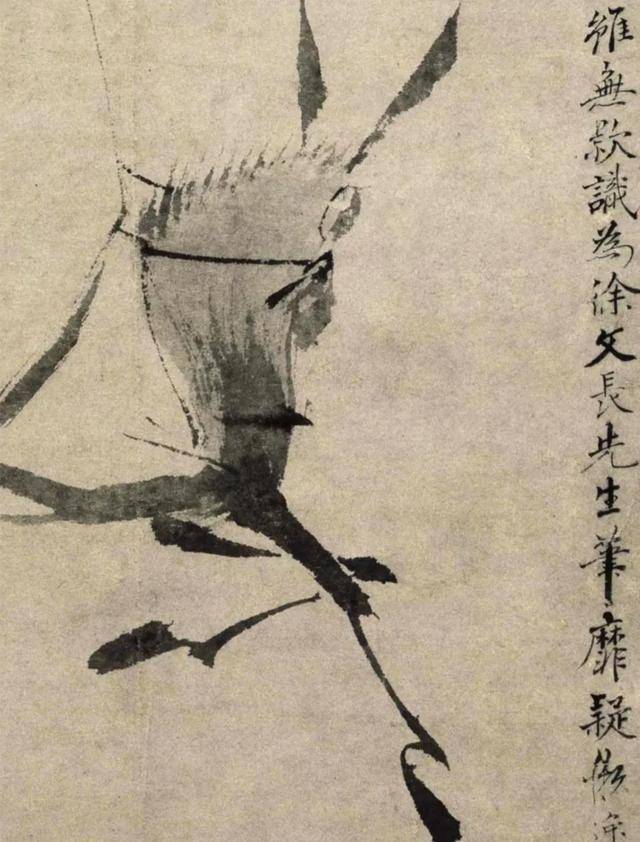 雖無款識為徐文長先生筆靡疑